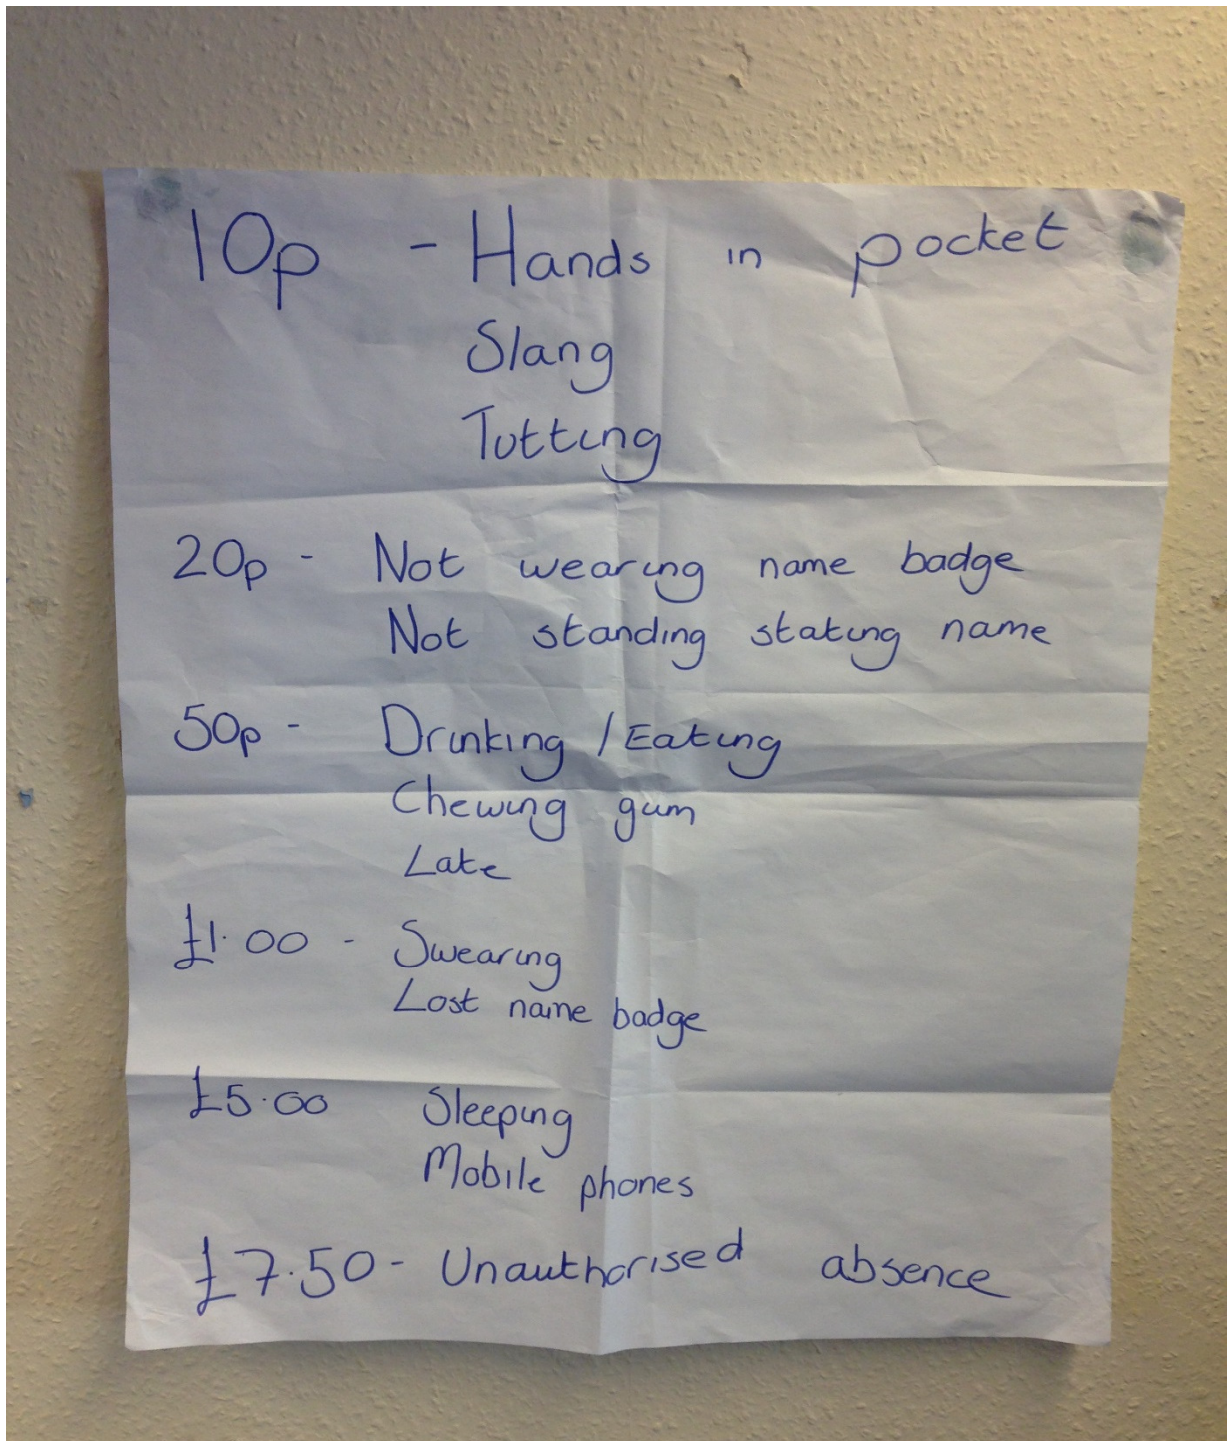 10p - Hands in pocket
Slang
Tutting
20p - Not wearing name badge
Not standing stating name
50p - Drinking / Eating
Chewing gum
Late
£1.00 - Swearing
Lost name badge
£5.00 Sleeping
Mobile phones
£7.50 - Unauthorised absence